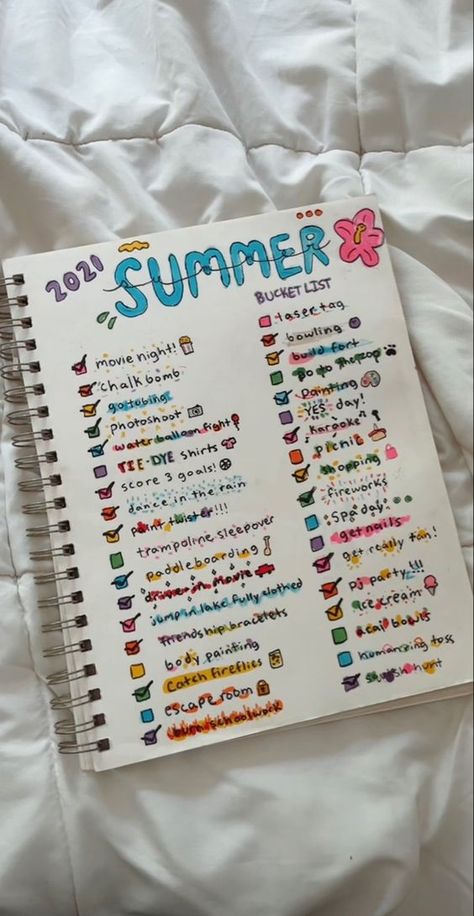 2021
SUMMER
BUCKET LIST
movie night!
chalk bomb
go tubing
photoshoot
water balloon fight
TIE-DYE shirts
score 3 goals!
dance in the rain
paint twister!!!
trampoline sleepover
paddleboarding
drive-in movie
jump in lake fully clothed
friendship bracelets
body painting
catch fireflies
escape room
burn schoolwork
laser tag
bowling
build fort
go to the pop
painting
YES day!
Karaoke
picnic
shopping
fireworks
spa day
get nails
get really tan!
pj party!!!
ice cream
acai bowls
hunting toss
hunt